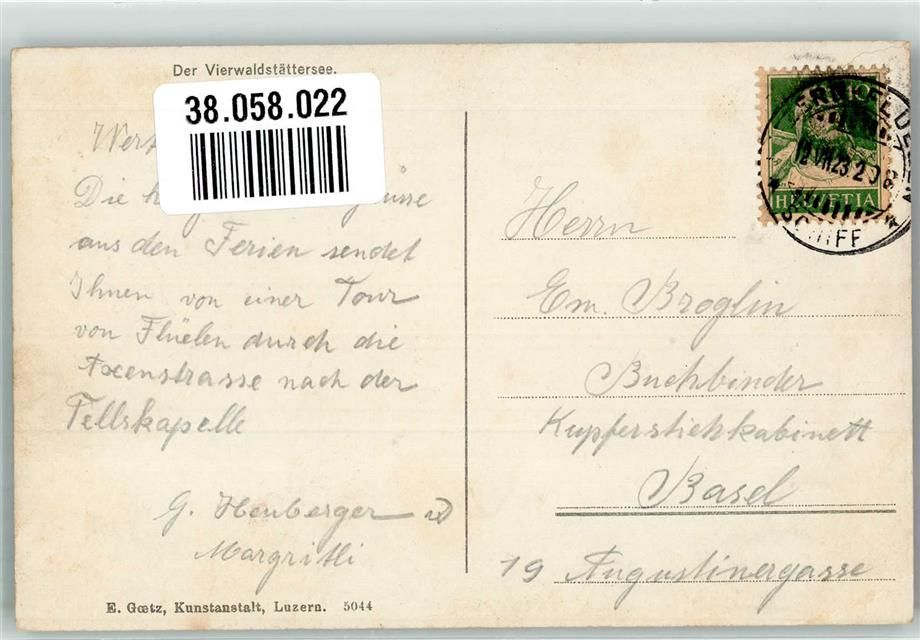 Der Vierwaldstättersee.
38.058.022
Die
aus den Ferien sendet
Ihnen von einer Tour
von Flüelen durch die
Axenstrasse nach der
Tellskapelle
G. Henberger
Margritli
E. Gœtz, Kunstanstalt, Luzern. 5044
10
HELVETIA
12.VII.23.
SCHIFF
Herrn
Em. Broglin
Buchbinder
Kupferstichkabinett
Basel
19 Augustinergasse